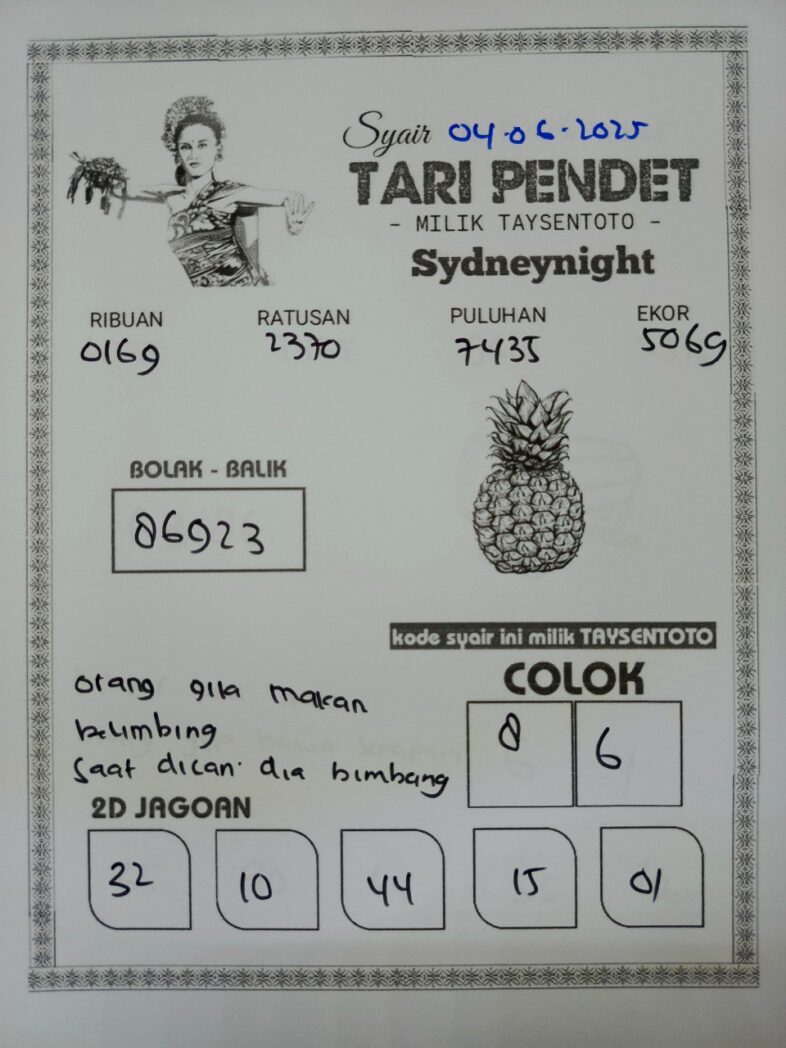 Syair 04-06-2025
TARI PENDET
- MILIK TAYSENTOTO -
Sydneynight
RIBUAN RATUSAN PULUHAN EKOR
0169 2370 7435 5069
BOLAK - BALIK
86923
kode syair ini milik TAYSENTOTO
COLOK
8 6
orang gila makan
belimbing
saat dicari dia bimbang
2D JAGOAN
32 10 44 15 01